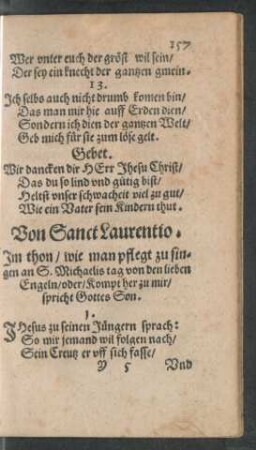 157
Wer vnter euch der gröst wil sein/
Der sey ein knecht der gantzen gmein.
13.
Ich selbs auch nicht drumb komen bin/
Das man mir hie auff Erden dien/
Sondern ich dien der gantzen Welt/
Geb mich für sie zum löse gelt.
Gebet.
Wir dancken dir HErr Jhesu Christ/
Das du so lind vnd gütig bist/
Heltst vnser schwacheit viel zu gut/
Wie ein Vater sein Kindern thut.
Von Sanct Laurentio.
Im thon/ wie man pflegt zu sin-
gen an S. Michaelis tag von den lieben
Engeln/oder/Kompt her zu mir/
spricht Gottes Son.
1.
JHesus zu seinen Jüngern sprach:
So mir jemand wil folgen nach/
Sein Creutz er vff sich fasse/
Y 5 Vnd